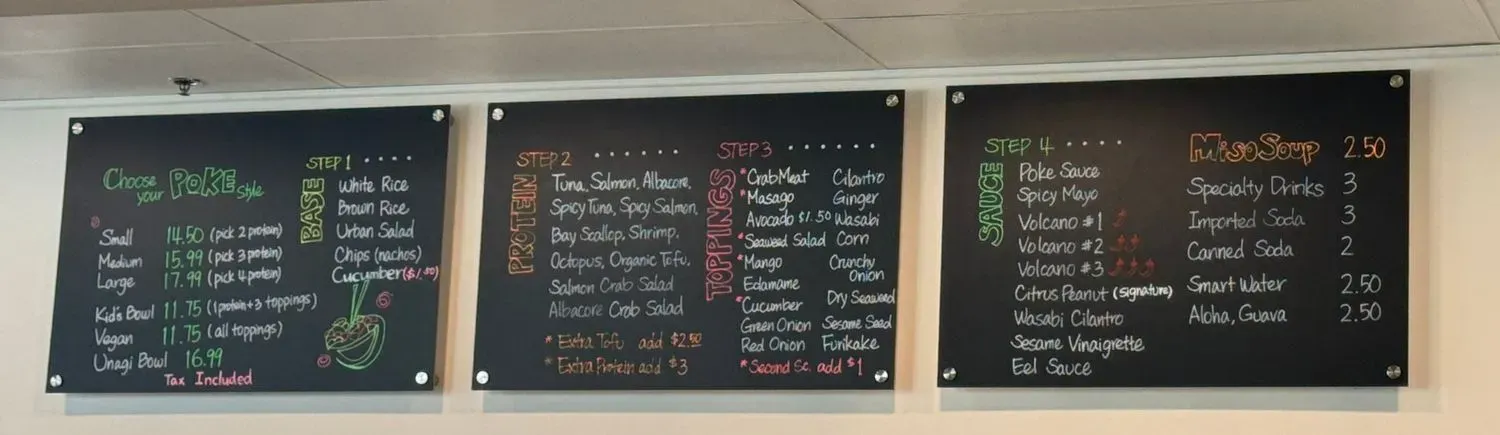 Choose
your POKE Style
Small 14.50 (pick 2 protein)
Medium 15.99 (pick 3 protein)
Large 17.99 (pick 4 protein)
Kid's Bowl 11.75 (1 protein + 3 toppings)
Vegan 11.75 (all toppings)
Unagi Bowl 16.99
Tax Included
STEP 1 . . . .
BASE
White Rice
Brown Rice
Urban Salad
Chips (nachos)
Cucumber ($1.50)
STEP 2 . . . . . .
PROTEIN
Tuna, Salmon, Albacore,
Spicy Tuna, Spicy Salmon,
Bay Scallop, Shrimp,
Octopus, Organic Tofu,
Salmon Crab Salad
Albacore Crab Salad
* Extra Tofu add $2.50
* Extra Protein add $3
STEP 3 . . . . . .
TOPPINGS
*Crab Meat
*Masago
Avocado $1.50
*Seaweed Salad
*Mango
Edamame
*Cucumber
Green Onion
Red Onion
Cilantro
Ginger
Wasabi
Corn
Crunchy
Onion
Dry Seaweed
Sesame Seed
Furikake
*Second Sc. add $1
STEP 4 . . . .
SAUCE
Poke Sauce
Spicy Mayo
Volcano #1
Volcano #2
Volcano #3
Citrus Peanut (signature)
Wasabi Cilantro
Sesame Vinaigrette
Eel Sauce
Miso Soup 2.50
Specialty Drinks 3
Imported Soda 3
Canned Soda 2
Smart Water 2.50
Aloha, Guava 2.50